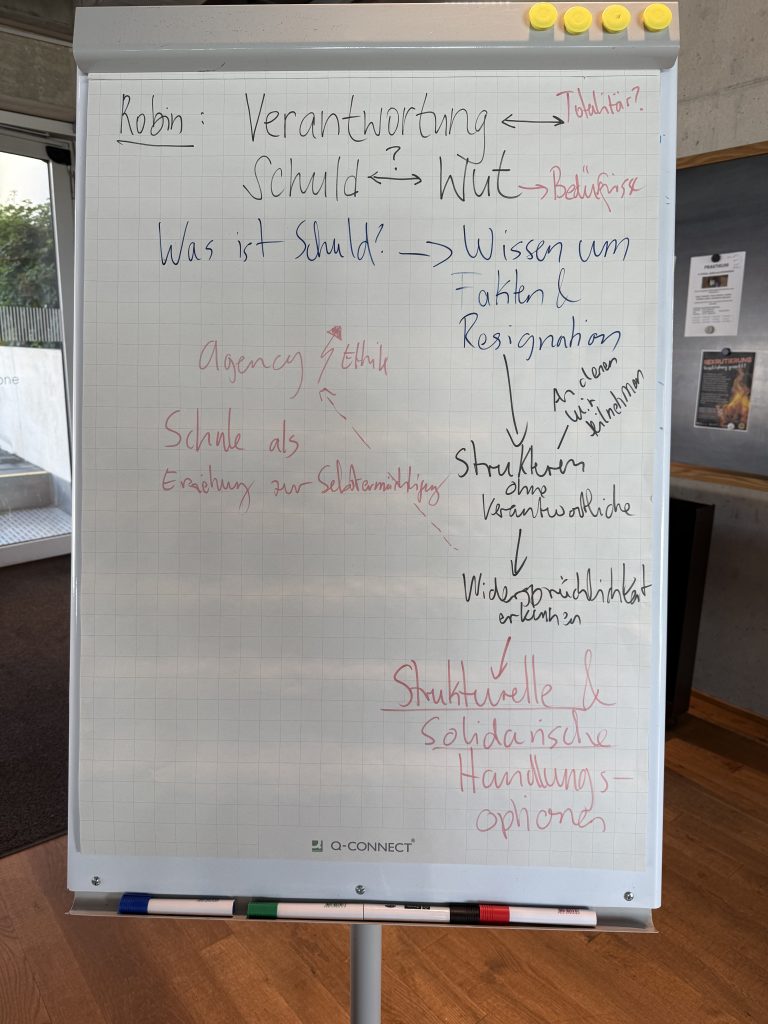 Robin: Verantwortung ↔ Totalitär?
Schuld ↔ ? Wut → Bedürfnisse
Was ist Schuld? → Wissen um
Fakten &
Resignation
Agency Ethik
An denen
wir
teilnehmen
Schule als
Erziehung zur Selbstermächtigung
Strukturen
ohne
Verantwortliche
Widersprüchlichkeit
erkennen
Strukturelle &
Solidarische
Handlungs-
optionen
Q-CONNECT®
PRAKTIKUM
REKRUTIERUNG
one